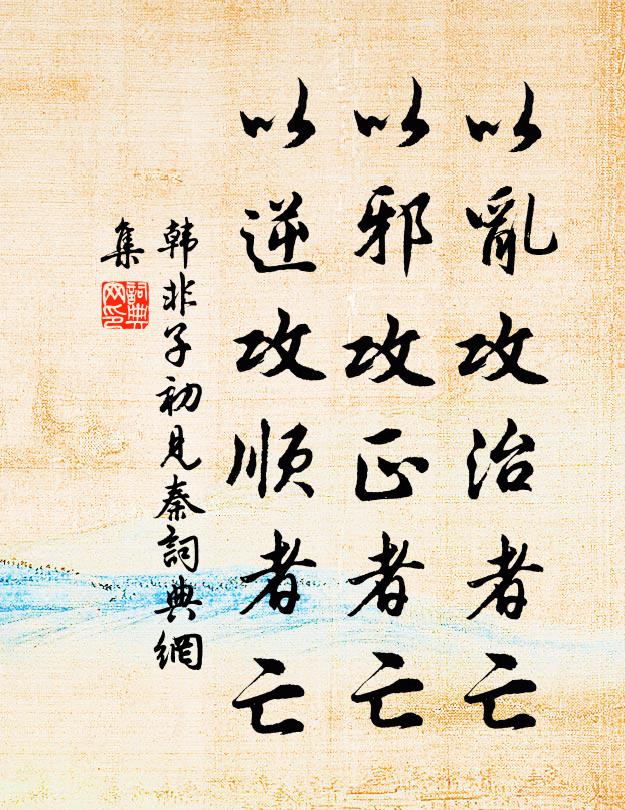 以亂攻治者亡
以邪攻正者亡
以逆攻順者亡
韩非子初見秦詞典網
集
詞典
网印